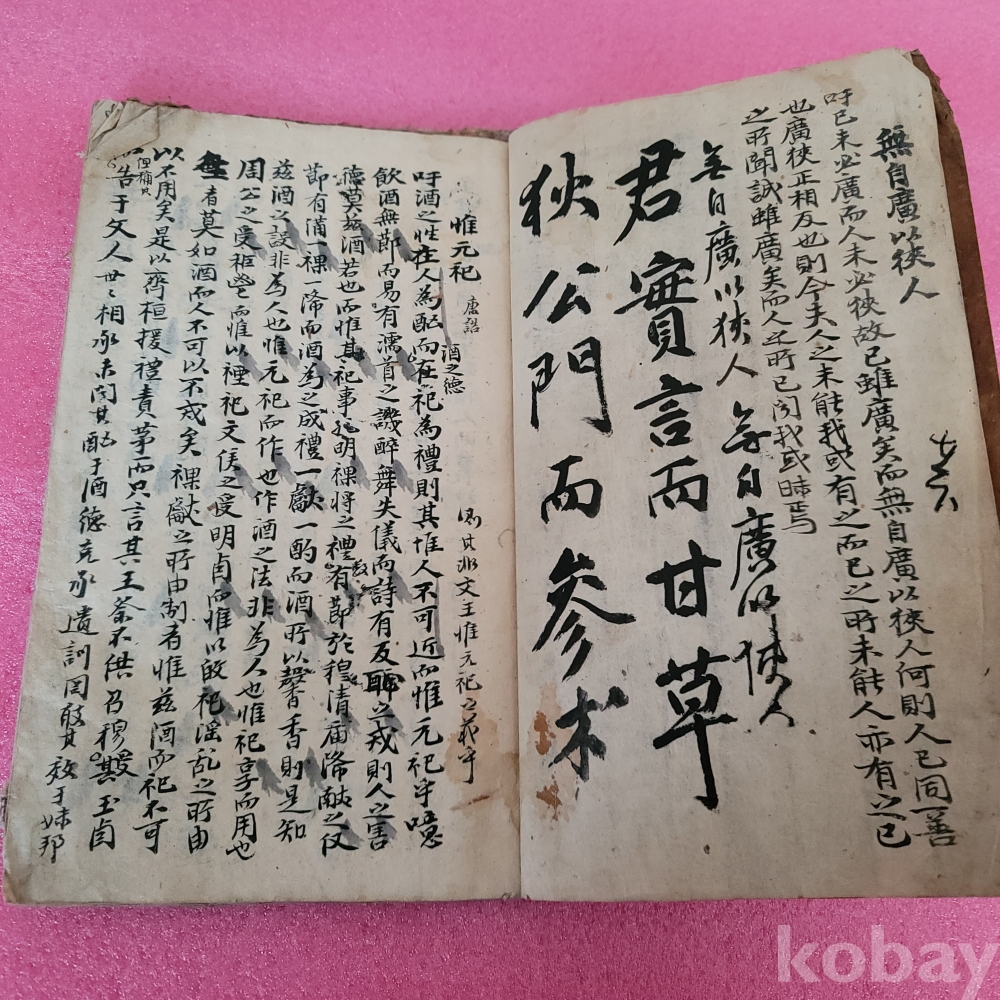 無自廣以狹人
吁己未必廣而人未必狹故己雖廣矣而無自廣以狹人何則人己同一善
也廣狹正相反也則今夫人之未能我或有之而己之所未能人亦有之己
之所聞誠雖廣矣而人之所已聞我或昧焉
無自廣以狹人 無自廣以狹人
君實言而甘草
狄公門而參朮
惟元祀 唐詔 酒之德
其非文王惟元祀之義乎
吁酒之性在人為酗而在祀為禮則其惟人不可近而惟元祀乎噫
飲酒無節而易有濡首之譏醉舞失儀而詩有反恥之戒則人之害
德莫玆酒若也而惟其祀事孔明祼將之禮有節於穆清廟降獻之仪
節有萬一祼一降而酒為之成禮一獻一酌而酒所以馨香則是知
玆酒之設非為人也惟元祀而作也作酒之法非為人也惟祀享而用也
周公之受秬鬯而惟以禋祀文侯之受明卣而惟以啟祀淫乱之所由
者莫如酒而人不可以不戒矣祼獻之所由制者惟玆酒而祀不可
以不用矣是以齊桓援禮責茅而只言其王祭不供召穆受其玉卣
告于文人世々相承未聞其酗于酒德克承遺訓罔敢其效于妹邦
kobay